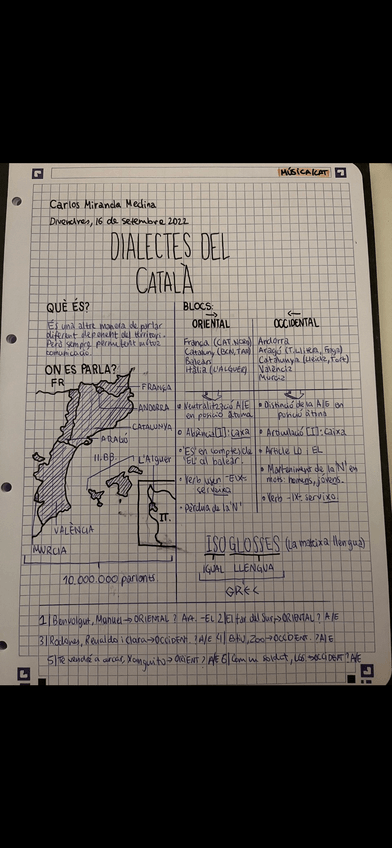 MÚSICA/CAT
Carlos Miranda Medina
Divendres, 16 de setembre 2022
DIALECTES DEL
CATALÀ
QUÈ ÉS?
És una altre manera de parlar
diferent depenent del territori.
Però sempre permetent mútua
comunicació.
ON ES PARLA?
FR
FRANÇA
ANDORRA
CATALUNYA
ARAGÓ
L'Alguer
IT.
VALÈNCIA
MURCIA
10.000.000 parlants
BLOCS:
ORIENTAL
França (CAT.NORD)
Catalunya (BCN, TAR)
Balears
Itàlia (L'ALGUER)
• Neutralització A/E
en posició àtona
• Absència [I]: caixa
• 'ES' en comptes de
'EL' al balear.
• Verb -EIX-
serveixo
• Pèrdua de la 'N'
OCCIDENTAL
Andorra
Aragó
Catalunya
València
Murcia
• Distinció de la A/E en
posició àtona
• Articulació [I]: caixa
• Article LO i EL
• Manteniment de la 'N' en
mots: homens, jóvens.
• Verb -IX- servixo
ISOGLOSSES (La mateixa llengua)
IGUAL LLENGUA
GREC
1| Benvolgut, Manel → ORIENTAL ? A/E -EL 2| El far del Sur → ORIENTAL ? A/E
3| Rodores, Renaldo i Clara → OCCIDENT. ? A/E 4| Zoo → OCCIDENT. ? A/E
5| Te vendré a cercar, Xanguito → ORIENT ? A/E 6| Com un soldat, → OCCIDENT ? A/E